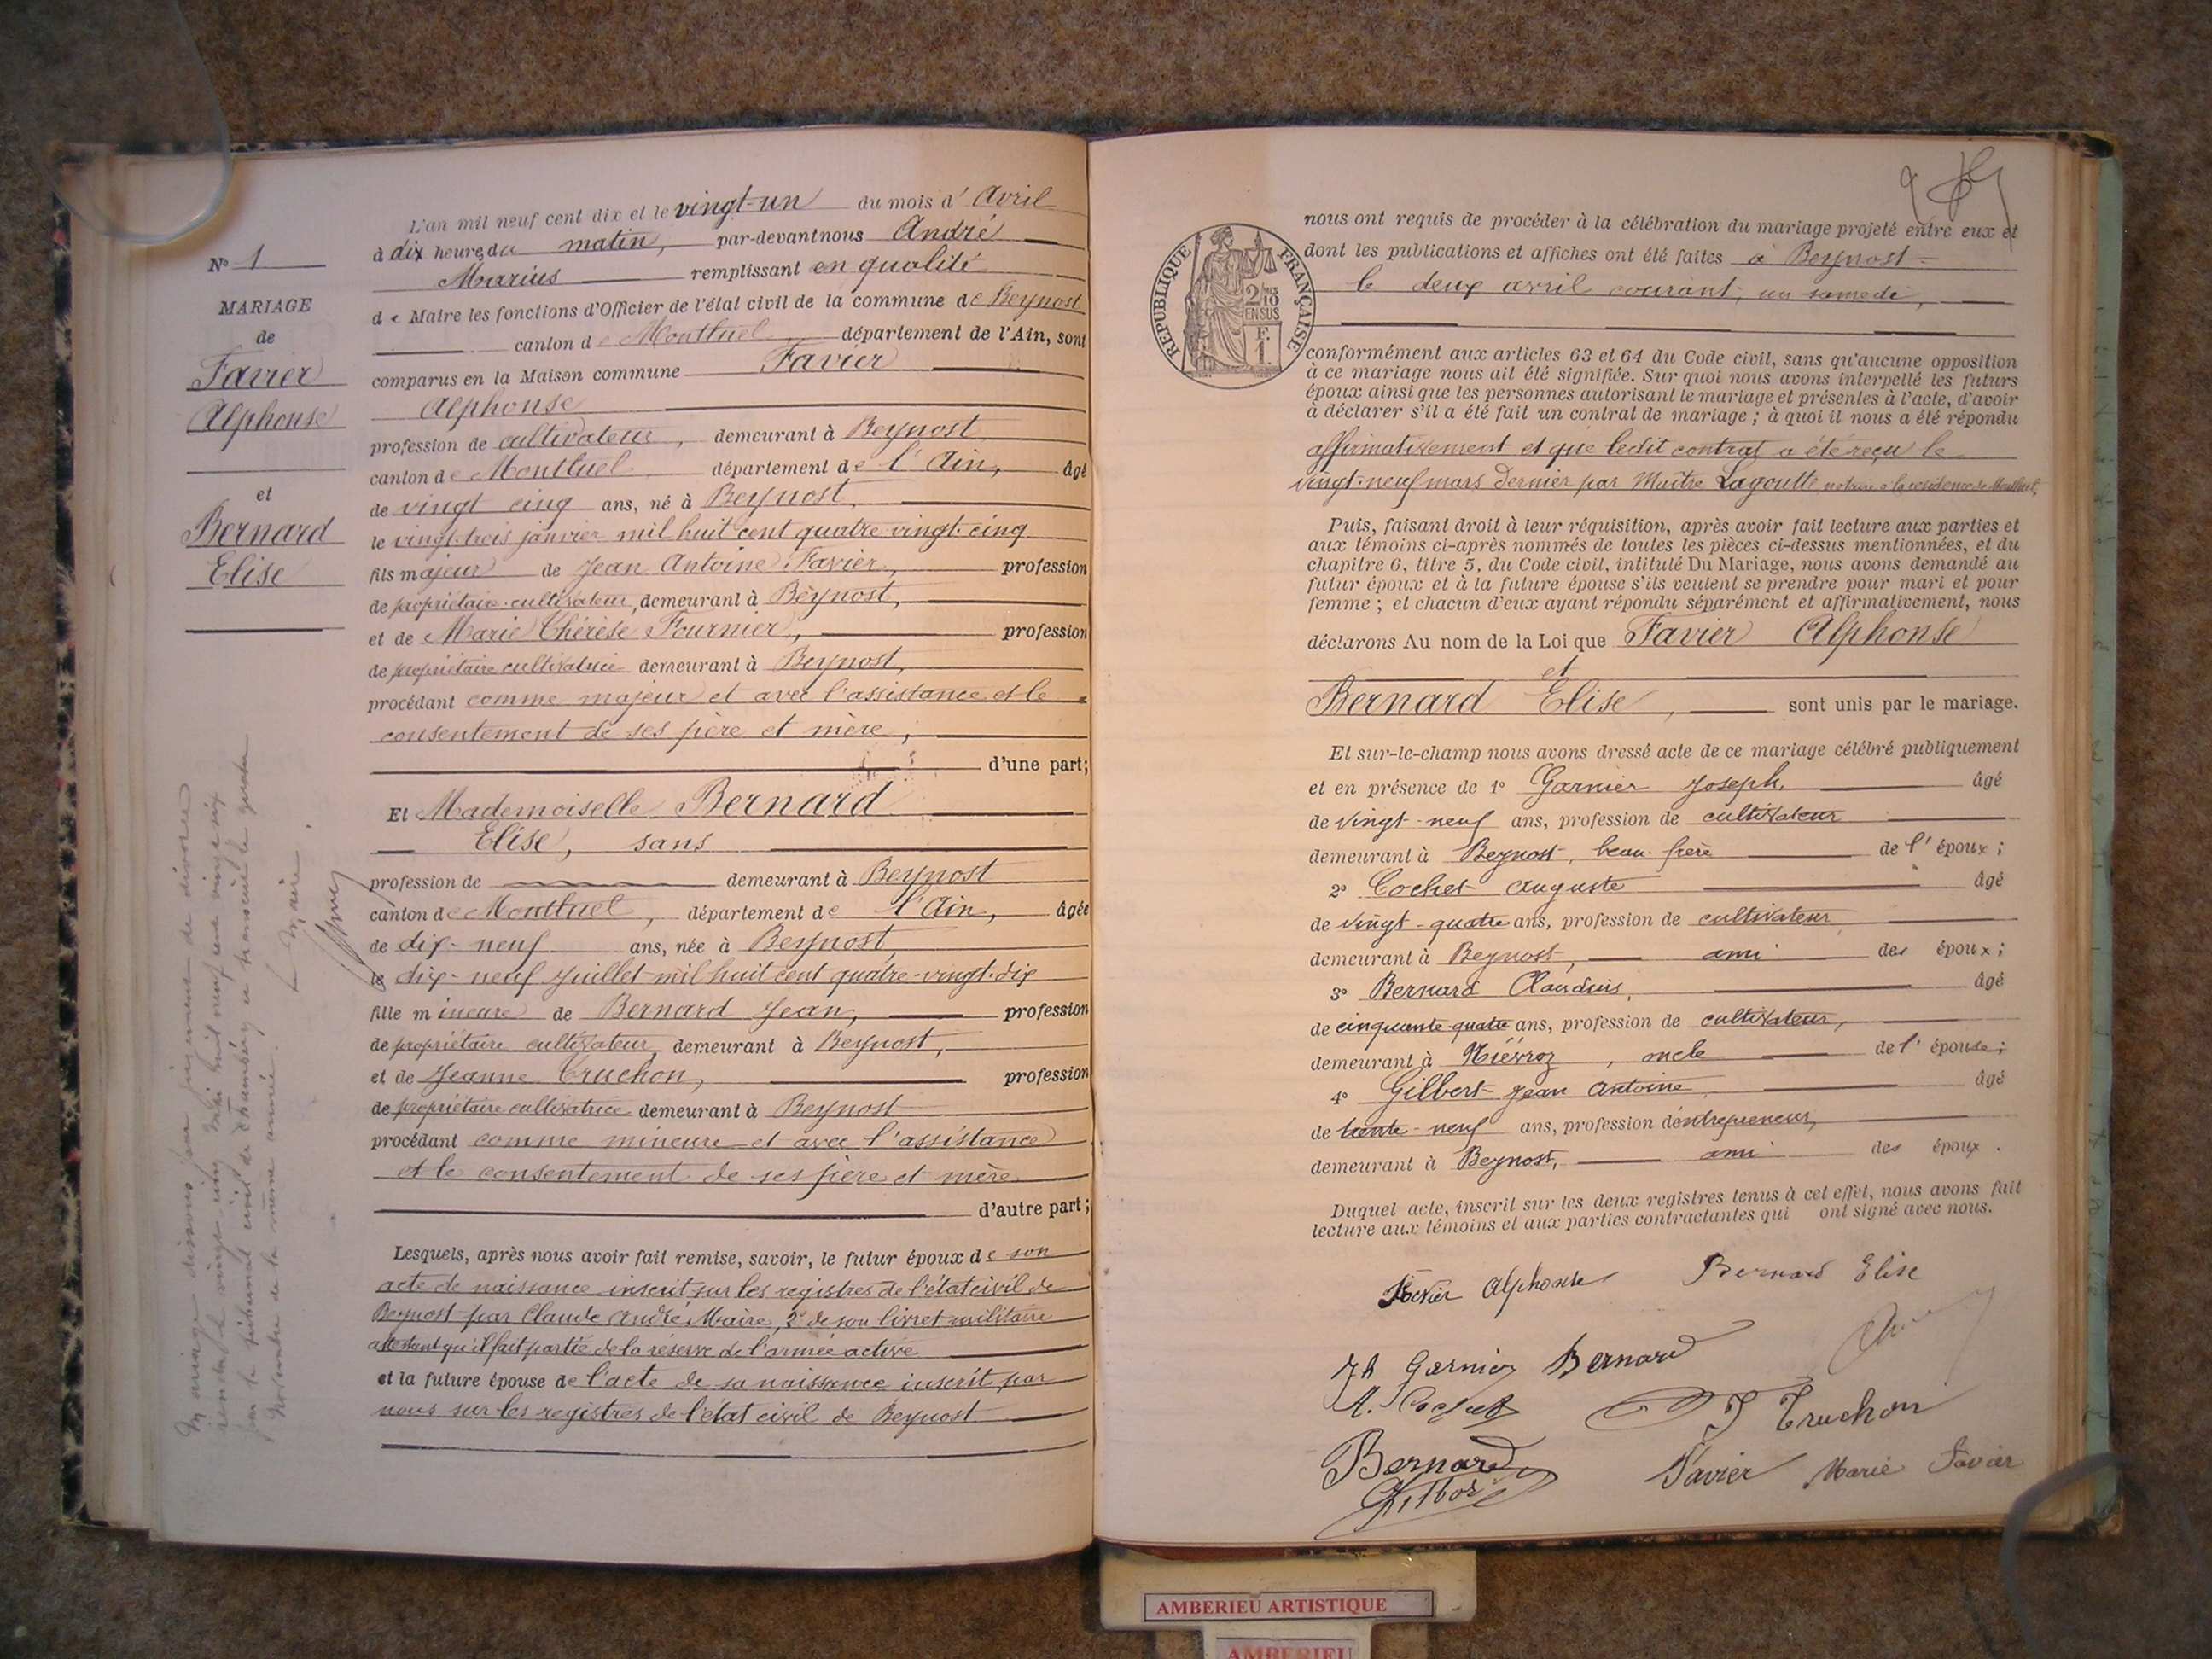 N° 1
MARIAGE
de
Favier
Alphonse
et
Bernard
Elise
Mariage dissous par jugement de divorce
rendu le vingt cinq Mai mil neuf cent vingt six
par le tribunal civil de Chambéry et transcrit le
de la même année.
Le Maire.
L'an mil neuf cent dix et le vingt-un du mois d'Avril
à dix heures du matin, par-devant nous André
Marius remplissant en qualité
de Maire les fonctions d'Officier de l'état civil de la commune de Beynost
canton de Montluel département de l'Ain, sont
comparus en la Maison commune Favier
Alphonse
profession de cultivateur, demeurant à Beynost
canton de Montluel département de l'Ain, âgé
de vingt cinq ans, né à Beynost,
le vingt-trois janvier mil huit cent quatre-vingt-cinq
fils majeur de Jean Antoine Favier, profession
de propriétaire-cultivateur, demeurant à Beynost,
et de Marie Thérèse Fournier, profession
de propriétaire cultivatrice demeurant à Beynost,
procédant comme majeur et avec l'assistance et le
consentement de ses père et mère,
d'une part;
Et Mademoiselle Bernard
Elise, sans
profession de demeurant à Beynost
canton de Montluel, département de l'Ain, âgée
de dix-neuf ans, née à Beynost,
le dix-neuf Juillet mil huit cent quatre-vingt-dix
fille mineure de Bernard Jean, profession
de propriétaire cultivateur, demeurant à Beynost,
et de Jeanne Truchon, profession
de propriétaire cultivatrice demeurant à Beynost
procédant comme mineure et avec l'assistance
et le consentement de ses père et mère
d'autre part;
Lesquels, après nous avoir fait remise, savoir, le futur époux de son
acte de naissance inscrit sur les registres de l'état civil de
Beynost par Claude André Maire, 2° de son livret militaire
attestant qu'il fait partie de la réserve de l'armée active
et la future épouse de l'acte de sa naissance inscrit par
nous sur les registres de l'état civil de Beynost
REPUBLIQUE FRANÇAISE
2/10
EN SUS
F.
1.
nous ont requis de procéder à la célébration du mariage projeté entre eux et
dont les publications et affiches ont été faites à Beynost
le deux avril courant, un samedi,
conformément aux articles 63 et 64 du Code civil, sans qu'aucune opposition
à ce mariage nous ait été signifiée. Sur quoi nous avons interpellé les futurs
époux ainsi que les personnes autorisant le mariage et présentes à l'acte, d'avoir
à déclarer s'il a été fait un contrat de mariage ; à quoi il nous a été répondu
affirmativement et que ledit contrat a été reçu le
vingt-neuf mars dernier par Maître Lagoutte notaire à la résidence de Montluel,
Puis, faisant droit à leur réquisition, après avoir fait lecture aux parties et
aux témoins ci-après nommés de toutes les pièces ci-dessus mentionnées, et du
chapitre 6, titre 5, du Code civil, intitulé Du Mariage, nous avons demandé au
futur époux et à la future épouse s'ils veulent se prendre pour mari et pour
femme ; et chacun d'eux ayant répondu séparément et affirmativement, nous
déclarons Au nom de la Loi que Favier Alphonse
et
Bernard Elise, sont unis par le mariage.
Et sur-le-champ nous avons dressé acte de ce mariage célébré publiquement
et en présence de 1° Garnier Joseph, âgé
de vingt-neuf ans, profession de cultivateur
demeurant à Beynost, beau-frère de l'époux ;
2° Cochet Auguste âgé
de vingt-quatre ans, profession de cultivateur
demeurant à Beynost, ami des époux ;
3° Bernard Claudius, âgé
de cinquante-quatre ans, profession de cultivateur,
demeurant à Niévroz, oncle de l'épouse ;
4° Gilbert Jean Antoine, âgé
de trente-neuf ans, profession d'entrepreneur,
demeurant à Beynost, ami des époux.
Duquel acte, inscrit sur les deux registres tenus à cet effet, nous avons fait
lecture aux témoins et aux parties contractantes qui ont signé avec nous.
Favier Alphonse Bernard Elise
Garnier Bernard
A. Cochet J Truchon
Bernard Favier Marie Favier
Gilbert
AMBERIEU ARTISTIQUE
AMBERIEU